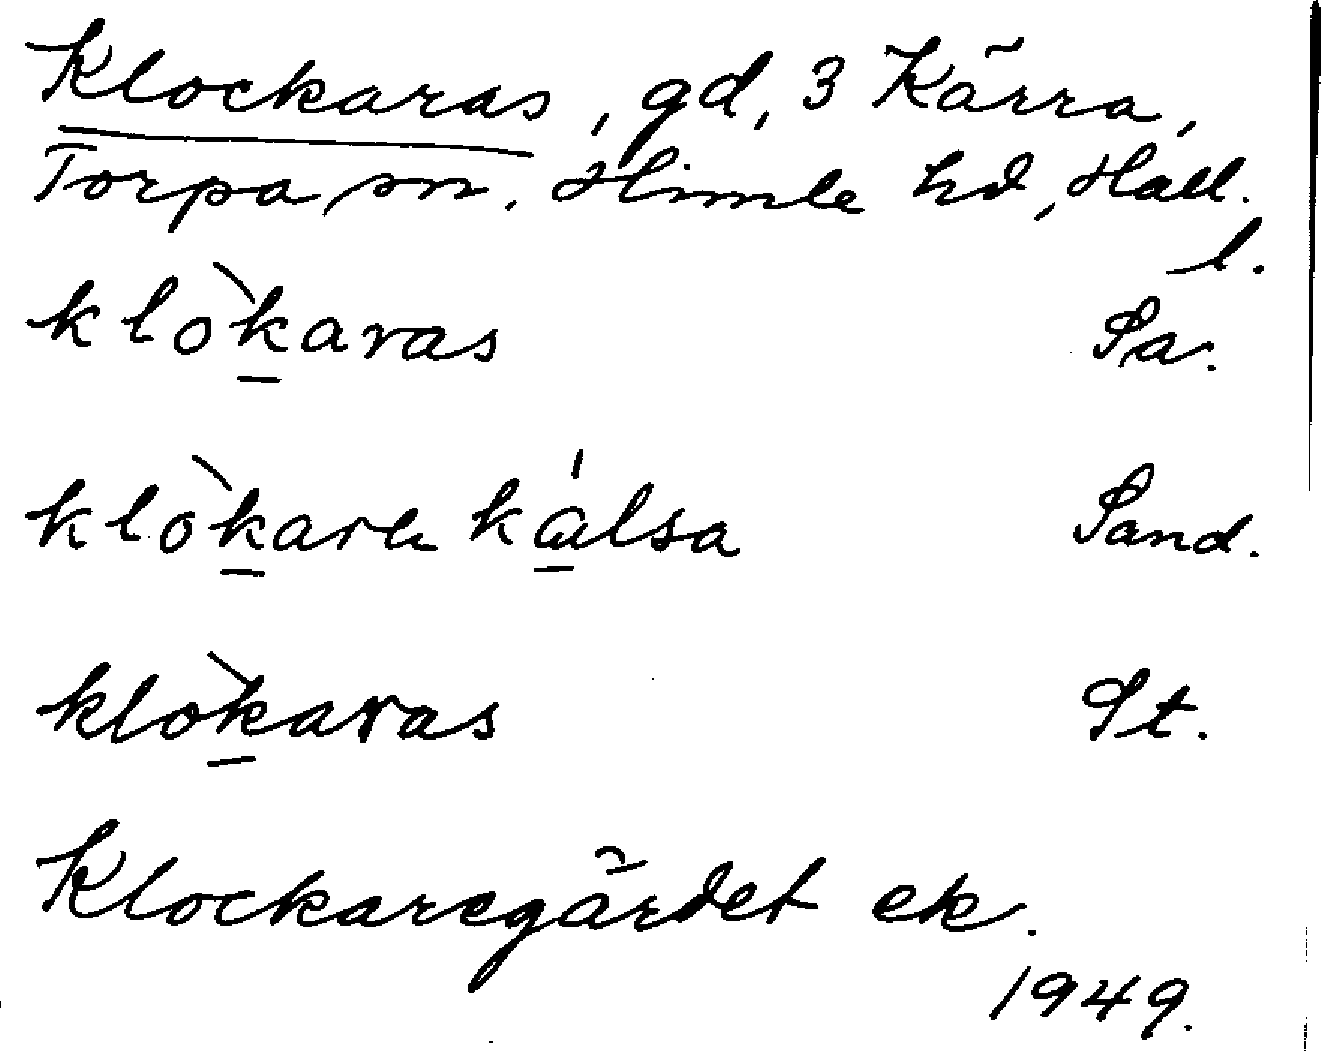 Klockaras, gd, 3 Kärra,
Torpa sn. Himle hd, Hall.
l.
klòkaras Sa.
klòkara kálsa Sand.
klòkaras St.
Klockaregärdet ek.
1949.